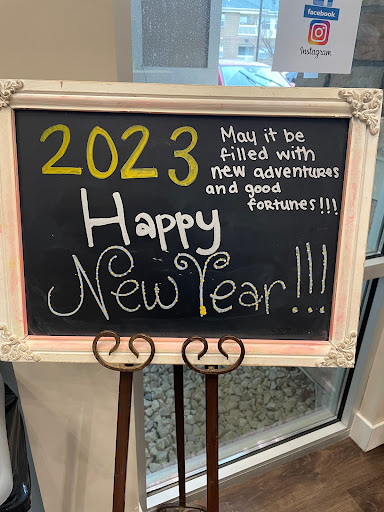 facebook
Instagram
2023
May it be
filled with
new adventures
and good
fortunes!!!
Happy
New Year!!!